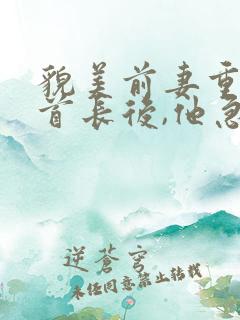 貌美前妻重
首长後,他急
逆蒼穹
未经同意禁止转载